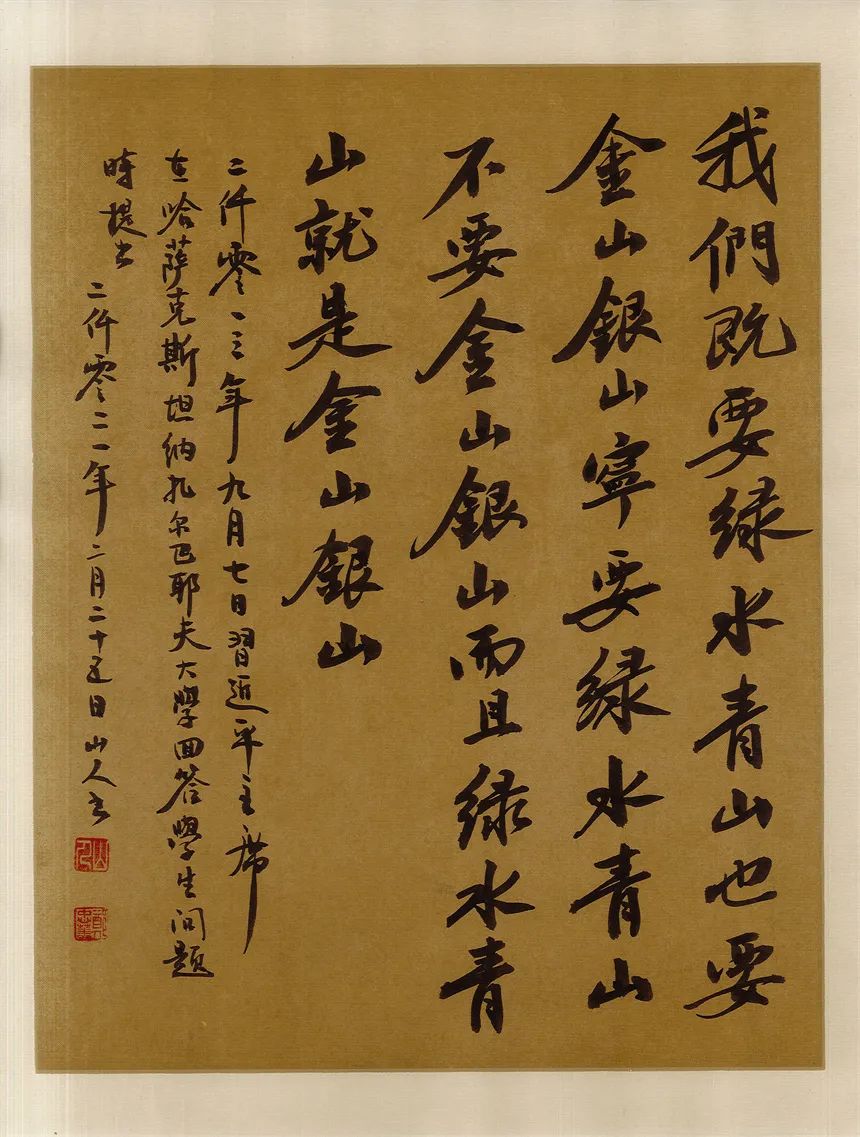 我們既要緑水青山也要
金山銀山寧要緑水青山
不要金山銀山而且緑水青
山就是金山銀山
二仟零一三年九月七日習近平主席
在哈萨克斯坦纳扎尔巴耶夫大學回答學生问题
時提出
二仟零二一年二月二十五日山人书
山人